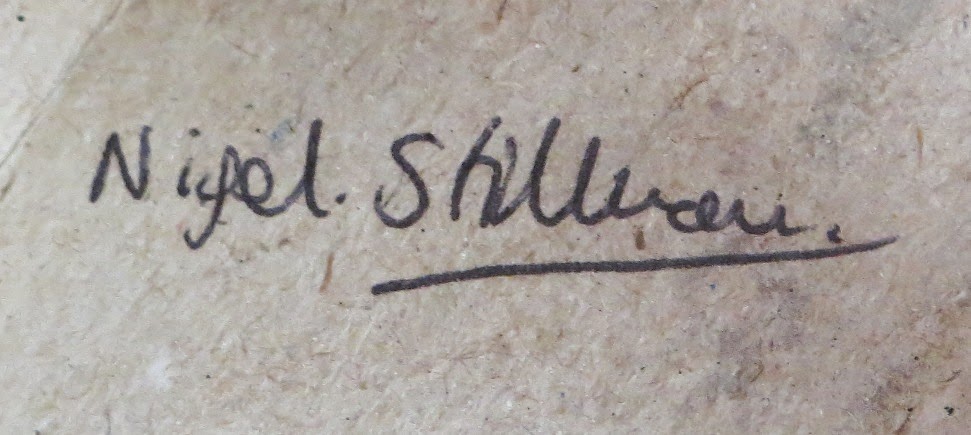 Nigel. Stillman.